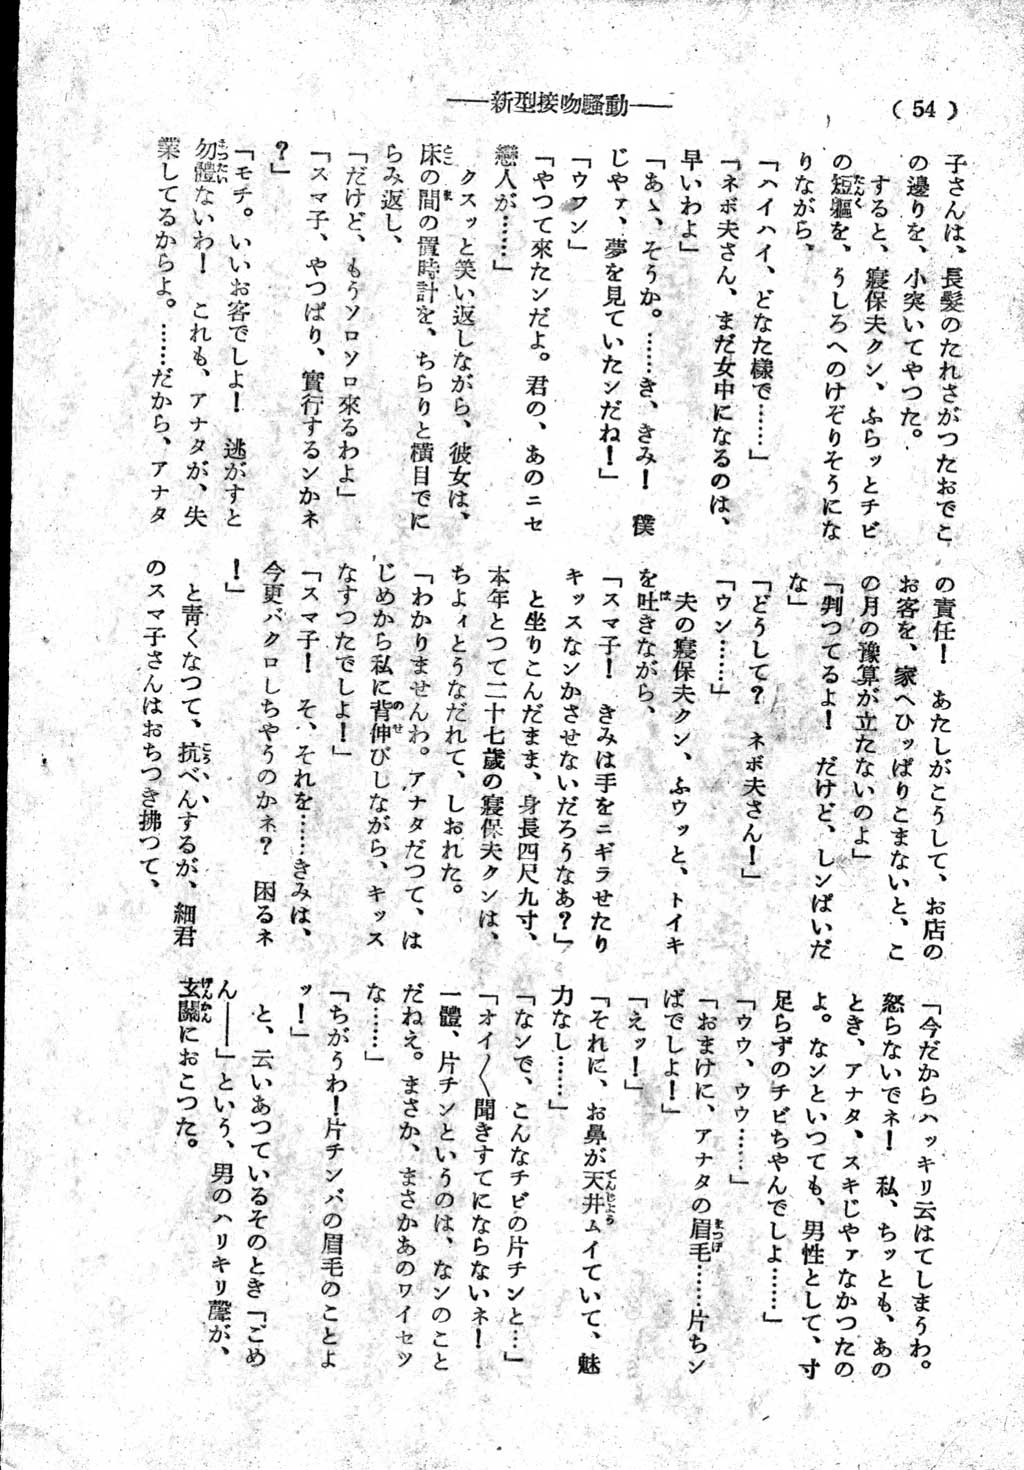 (54)
――新型接吻騷動――
子さんは、長髮のたれさがつたおでこ
の邊りを、小突いてやつた。
すると、寢保夫クン、ふらッとチビ
の短軀を、うしろへのけぞりそうにな
りながら、
「ハイハイ、どなた樣で……」
「ネボ夫さん、まだ女中になるのは、
早いわよ」
「あゝ、そうか。……き、きみ！　僕
じやァ、夢を見ていたンだね！」
「ウフン」
「やつて來たンだよ。君の、あのニセ
戀人が……」
クスッと笑い返しながら、彼女は、
床の間の置時計を、ちらりと橫目でに
らみ返し、
「だけど、もうソロソロ來るわよ」
「スマ子、やつぱり、實行するンかネ
？」
「モチ。いいお客でしよ！　逃がすと
勿體ないわ！　これも、アナタが、失
業してるからよ。……だから、アナタ
の責任！　あたしがこうして、お店の
お客を、家へひッぱりこまないと、こ
の月の豫算が立たないのよ」
「判つてるよ！　だけど、しンぱいだ
な」
「どうして？　ネボ夫さん！」
「ウン……」
夫の寢保夫クン、ふウッと、トイキ
を吐きながら、
「スマ子！　きみは手をニギラせたり
キッスなンかさせないだろうなあ？」
と坐りこんだまま、身長四尺九寸、
本年とつて二十七歲の寢保夫クンは、
ちよィとうなだれて、しおれた。
「わかりませんわ。アナタだつて、は
じめから私に背伸びしながら、キッス
なすつたでしよ！」
「スマ子！　そ、それを……きみは、
今更バクロしちやうのかネ？　困るネ
！」
と靑くなつて、抗べんするが、細君
のスマ子さんはおちつき拂つて、
「今だからハッキリ云はてしまうわ。
怒らないでネ！　私、ちッとも、あの
とき、アナタ、スキじやァなかつたの
よ。なンといつても、男性として、寸
足らずのチビちやんでしよ……」
「ウウ、ウウ……」
「おまけに、アナタの眉毛……片ちン
ばでしよ！」
「えッ！」
「それに、お鼻が天井ムイていて、魅
力なし……」
「なンで、こんなチビの片チンと…」
「オイ〳〵聞きすてにならないネ！
一體、片チンというのは、なンのこと
だねえ。まさか、まさかあのワイセツ
な……」
「ちがうわ！片チンバの眉毛のことよ
ッ！」
と、云いあつているそのとき「ごめ
ん――」という、男のハリキリ聲が、
玄關におこつた。